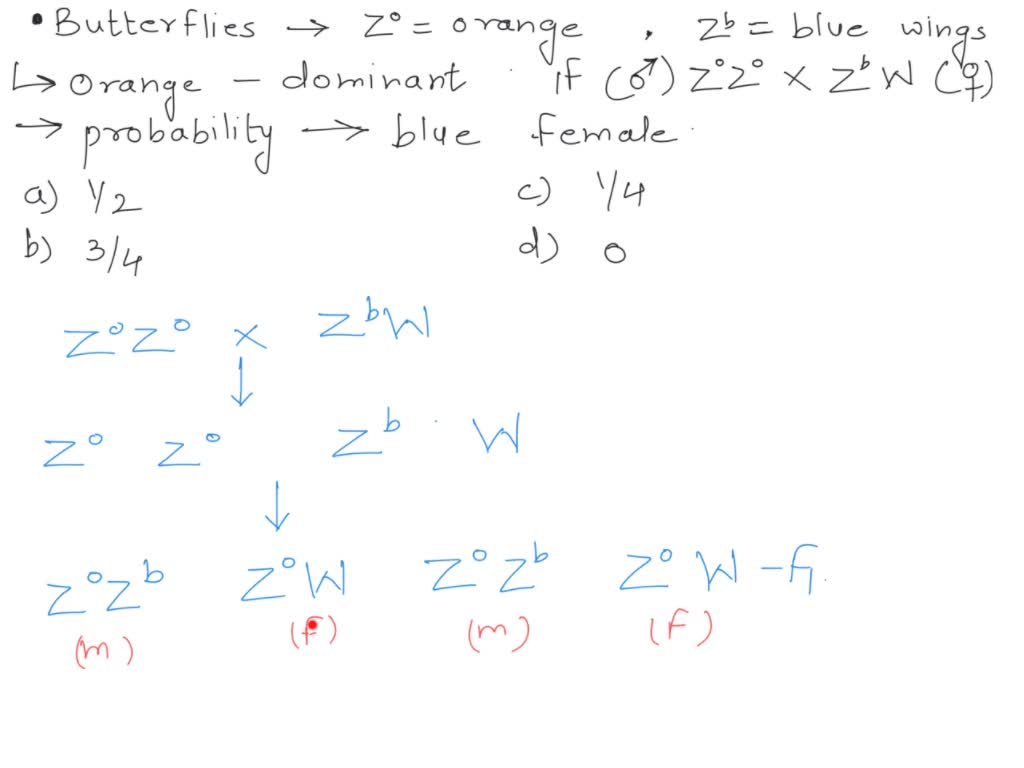 • Butterflies → Z° = orange , Zᵇ = blue wings
↳ orange - dominant if (♂) Z°Z° × ZᵇW (♀)
→ probability → blue female.
a) 1/2 c) 1/4
b) 3/4 d) 0
Z°Z° × ZᵇW
↓
Z° Z° Zᵇ W
↓
Z°Zᵇ Z°W Z°Zᵇ Z°W - F₁
(m) (F) (m) (F)